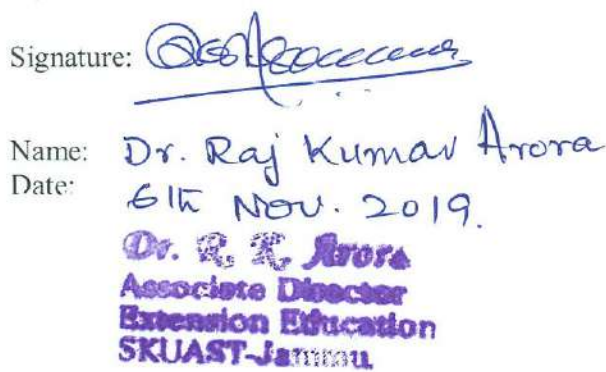 Signature:
Name: Dr. Raj Kumar Arora
Date: 6th Nov. 2019.
Dr. R. K. Arora
Associate Director
Extension Education
SKUAST-Jammu